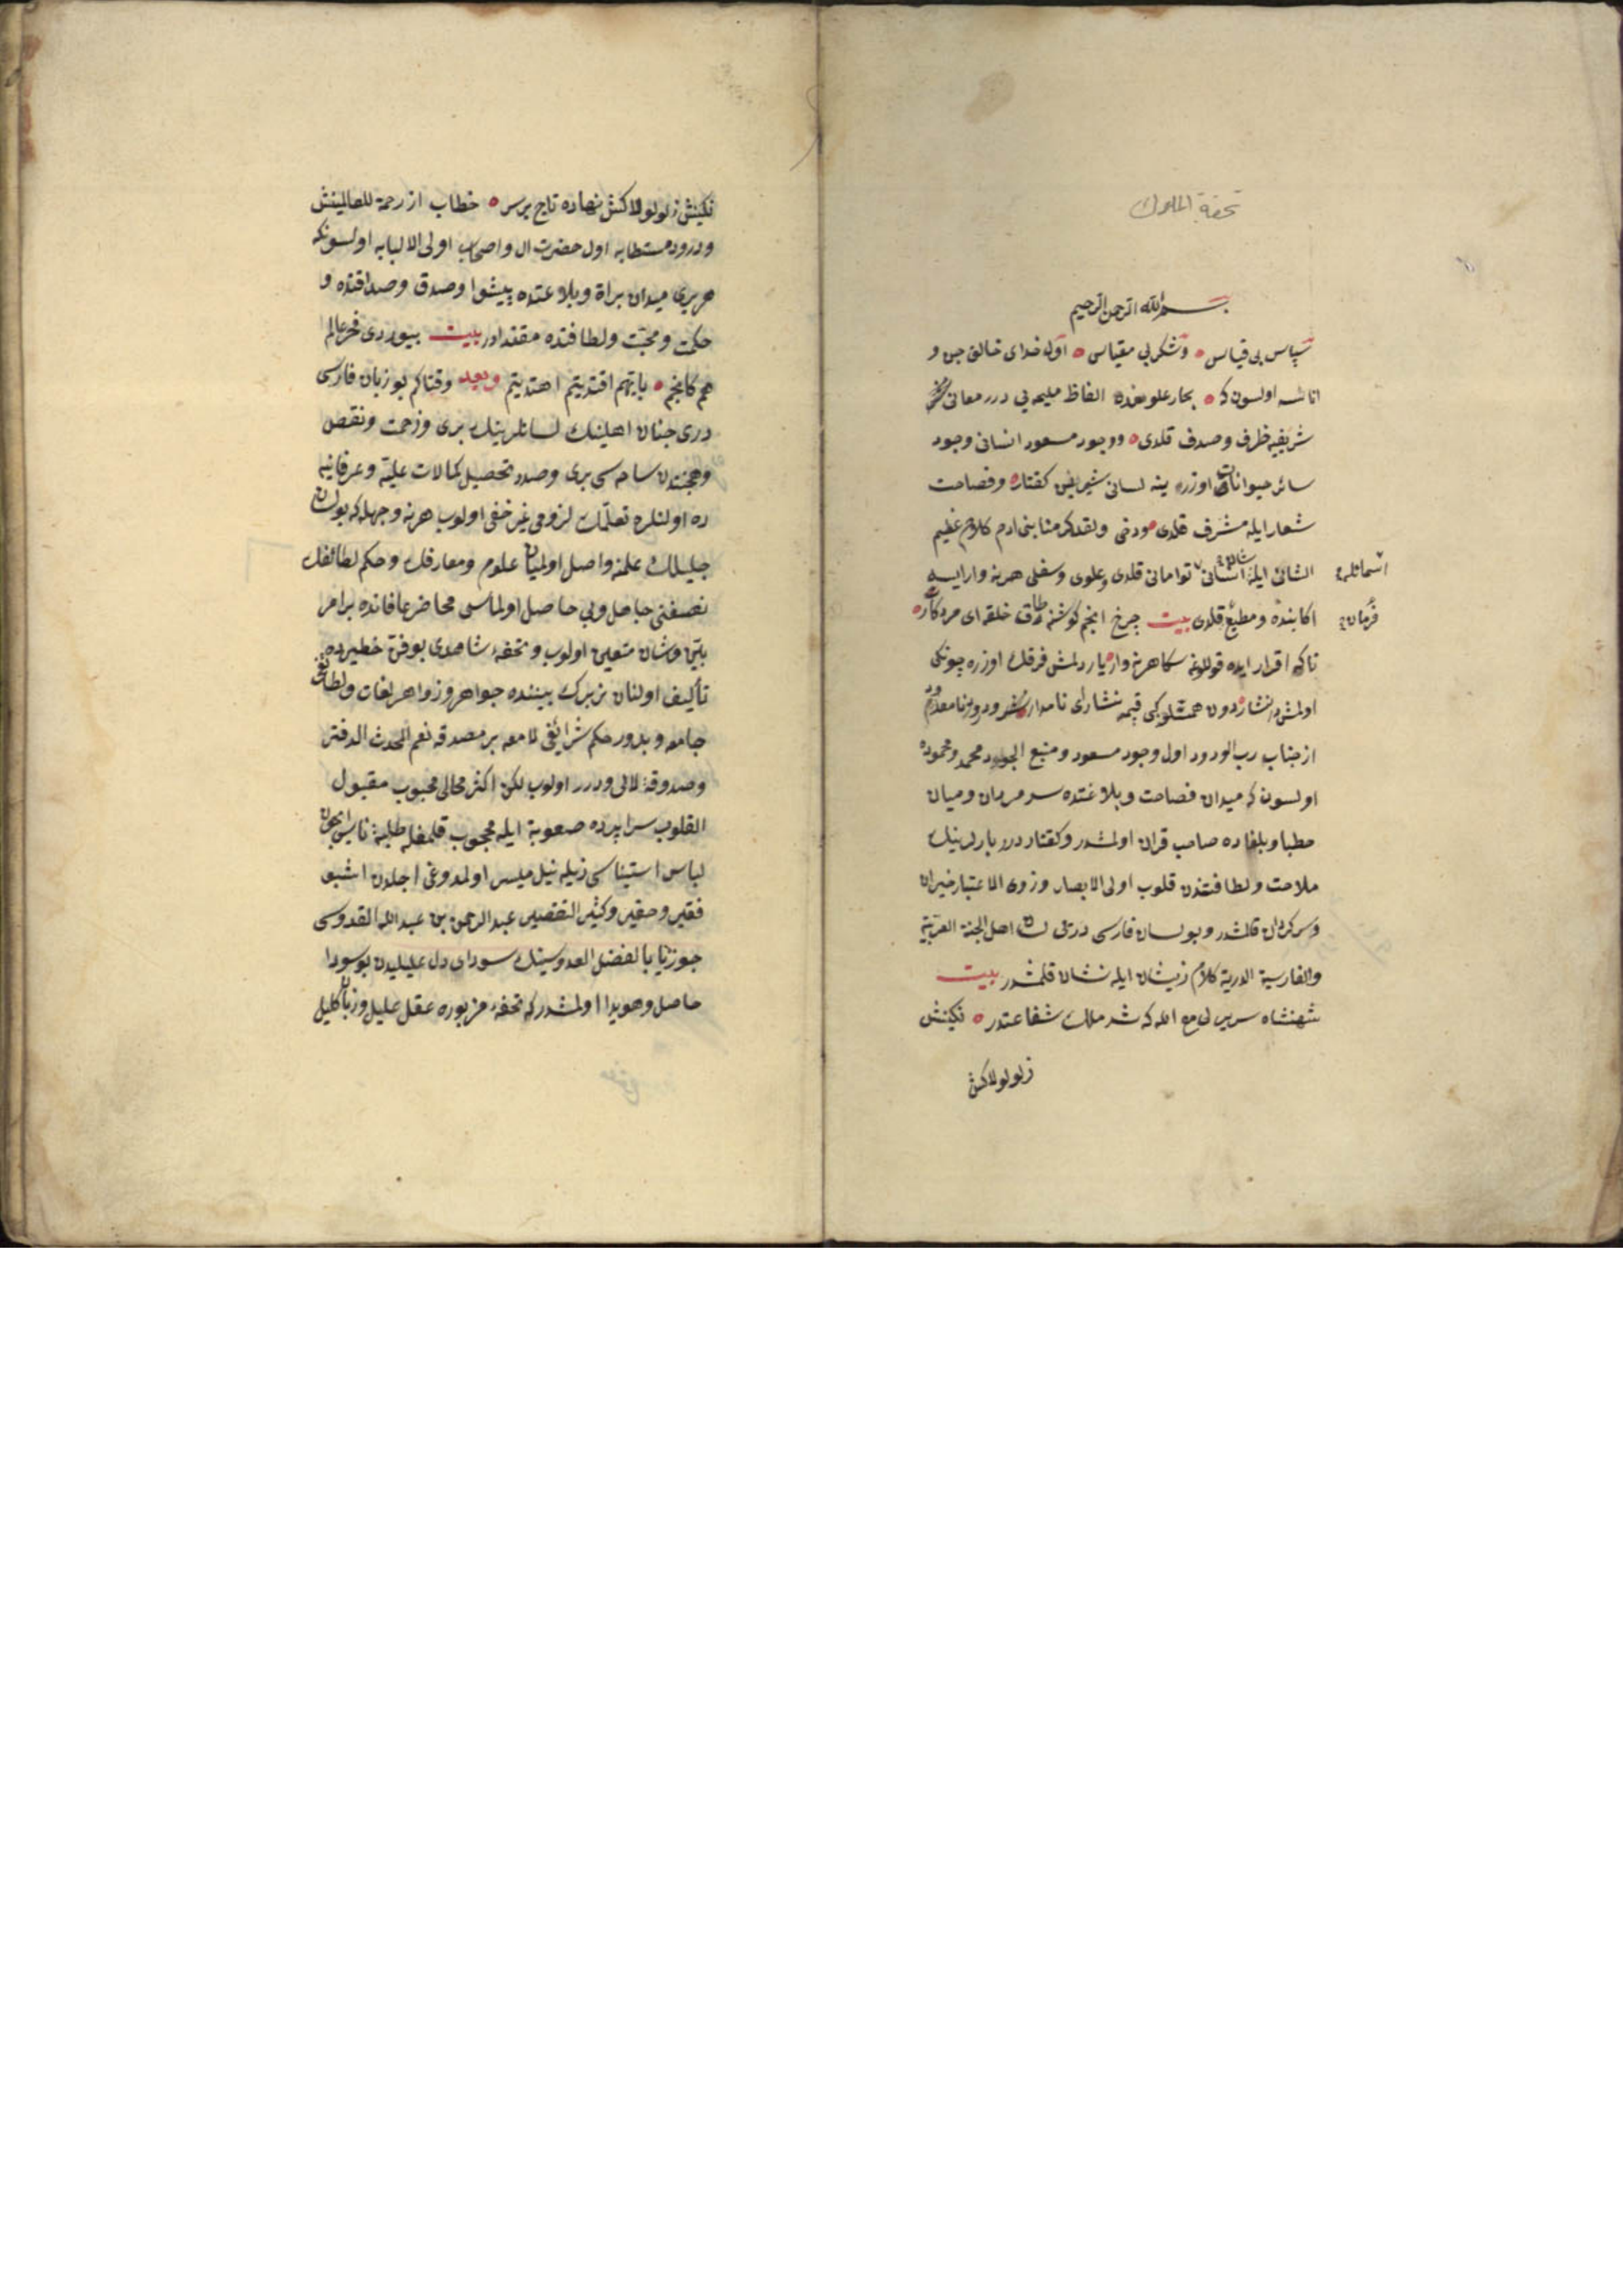 تحفة الملوك
بسم الله الرحمن الرحيم
سپاس بی قیاس وشکر بی مقیاس اول خدای خالق جن و
اناسه اولسون که بحار علومنده الفاظ ملیحه یی درر معانئ
شریفیه ظرف وصدف قلدی ووجود مسعود انسانی وجود
سائر حیوانات اوزره ینه لسانی شیرایین کفتار وفصاحت
شعار ایله مشرف قلدی ودخی ولقد کرمنا بنی ادم کلام عظیم
الشانی ایله انسانی توامانی قلدی وعلوی وسفلی هر نه وار ایسه
اسمائله
اکا بنده ومطیع قلدی بیت چرخ انجم کوشنه طاق خلقه ای مردکار
فرمان
تاکه اقرار ایده قوللغنه سکا هر نه وار یاردلمش فرقك اوزره چونکی
اولمش در نثار دون همتلو کبی قیمه نثاری نامدار ودرود نامعدود
از جناب رب الودود اول وجود مسعود ومنبع الجود محمد ومحموده
اولسون که میدان فصاحت وبلاغتده سر مردان ومیان
خطبا وبلغاده صاحب قران اولمشدر وکفتار درر بارلرینك
ملاحت ولطافتندن قلوب اولی الابصار وذوی الاعتبار حیران
وسرکردان قلمشدر وبو لسان فارسی درّیی لسان اهل الجنة العربیة
والفارسیة الدریة کلام ذیشان ایله نشان قلمشدر بیت
شهنشاه سریر لی مع الله که شد ملك شفاعتدر نکینش
زلولو لاکش
نکینش زلولو لاکش نهاده تاج برسر خطاب از رحمة للعالمینش
ودرود مستطابه اول حضرت ال واصحاب اولی الالبابه اولسونکه
هر بری میدان براة وبلاغتده پیشوا وصدق وصداقتده و
حکمت ومحبت ولطافتده مقتدادر بیت بیوردی فخر عالم
هم کانجم بایهم اقتدیتم اهتدیتم وبعد وقتاکم بو زبان فارسی
دری جنان اهلینك لسانلرینك بری وزحمت ونقص
وهجنتدن ساحه سی بری وصدد تحصیل کمالات علیة وعرفانیه
ده اولنلره تعلمك لزومی غیر خفی اولوب هر نه وجهله که بو لسان
جلیللك علمنه واصل اولمیان علوم ومعارفك وحکم لطائفك
نصفنی جاهل وبی حاصل اولماسی محاضر عافانده بر امر
بیّن وشان متعین اولوب وتحفه شاهدی بو فن خطیرده
تألیف اولنان نزبرك بیننده جواهر وزواهر لغات ولطائف
جامعه وبدور حکم شرائفی لامعه بر مصدقه نعم المحدث الدفتر
وصندوقهٔ لالی ودرر اولوب لکن اکثر محالی محبوب مقبول
القلوب سراپرده صعوبة ایله محجوب قلمغله طلبهٔ ناس
لباس استیناسی ذیله نیل میسر اولمدوغی اجلدن اشبو
فقیر وحقیر وکثیر التقصیر عبد الرحمن بن عبد الله القدوسی
جوزیا بالفضل القدوسینك سودای دل علیلیدن بو سودا
حاصل وهویدا اولمشدر که تحفهٔ مزبوره عقل علیل وزبان کلیل